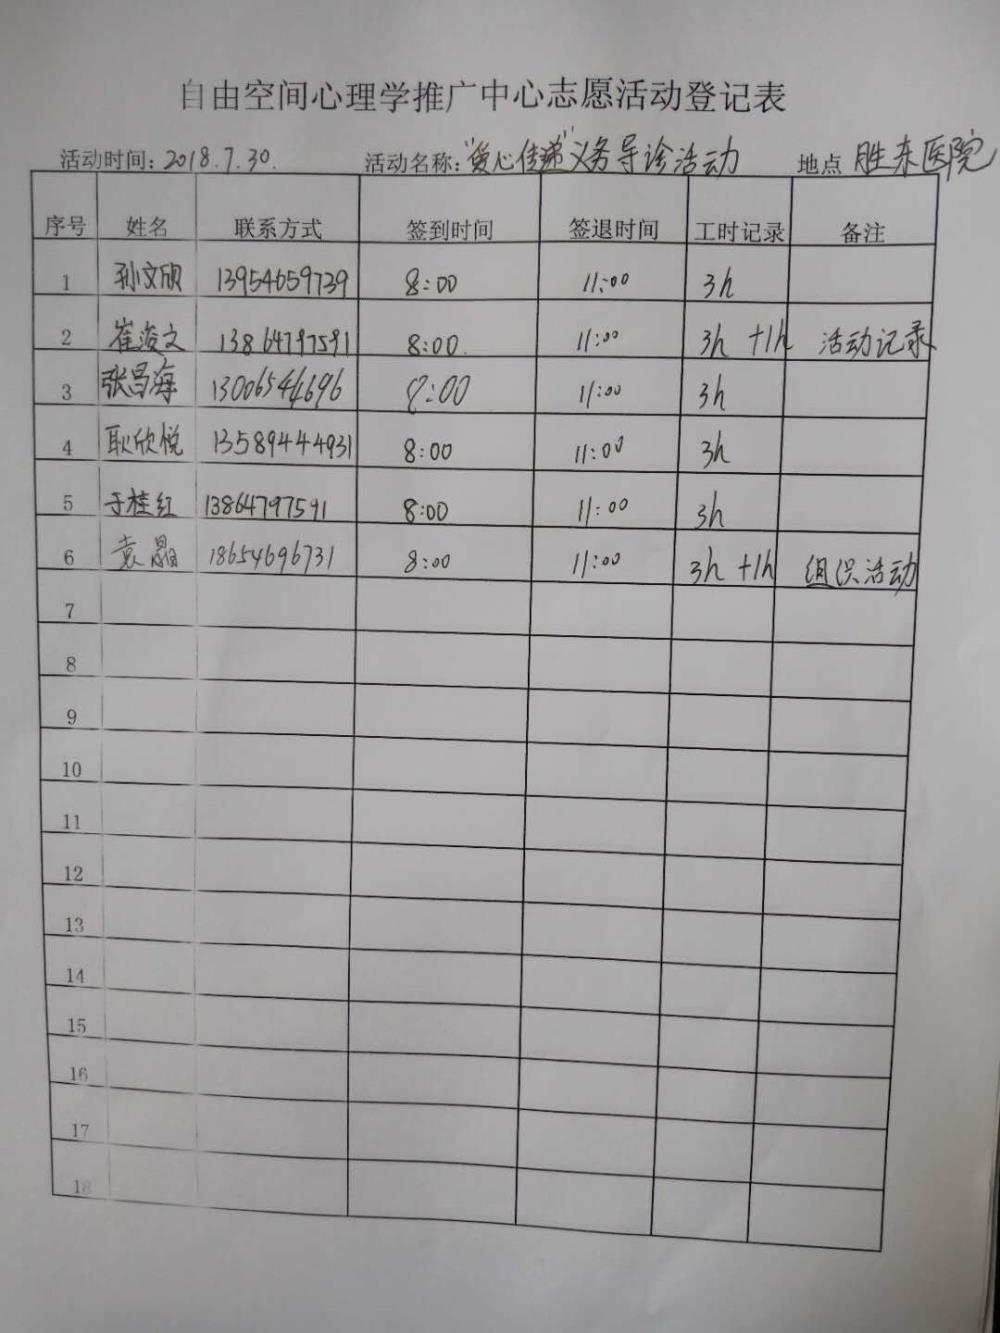 自由空间心理学推广中心志愿活动登记表
活动时间: 2018.7.30. 活动名称: "爱心佳递"义务导诊活动 地点 胜东医院
序号 姓名 联系方式 签到时间 签退时间 工时记录 备注
1 孙文欣 13954659739 8:00 11:00 3h
2 崔浚文 13864797591 8:00. 11:00 3h +1h 活动记录
3 张昌海 13006544696 8:00 11:00 3h
4 耿欣悦 13589444931 8:00 11:00 3h
5 于桂红 13864797591 8:00 11:00 3h
6 袁晶 18654696731 8:00 11:00 3h +1h 组织活动
7
8
9
10
11
12
13
14
15
16
17
18